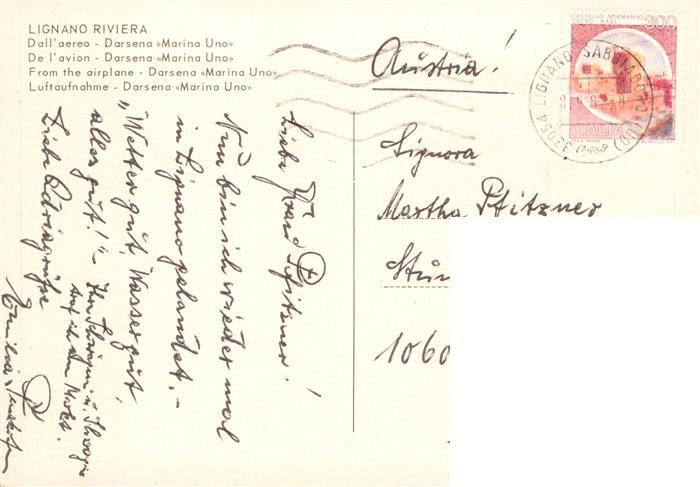 LIGNANO RIVIERA
Dall'aereo - Darsena «Marina Uno»
De l'avion - Darsena «Marina Uno»
From the airplane - Darsena «Marina Uno»
Luftaufnahme - Darsena «Marina Uno»
CASTELLO NORMANNO
300
ITALIA
33054 LIGNANO SABBIADORO (UD)
Austria!
Signora
Martha Pfitzner
1060
Liebe Frau Pfitzner!
Nun bin ich wieder mal
in Lignano gelandet. -
„Wetter gut, Wasser gut,
alles gut!" -
Liebe Adriagrüße